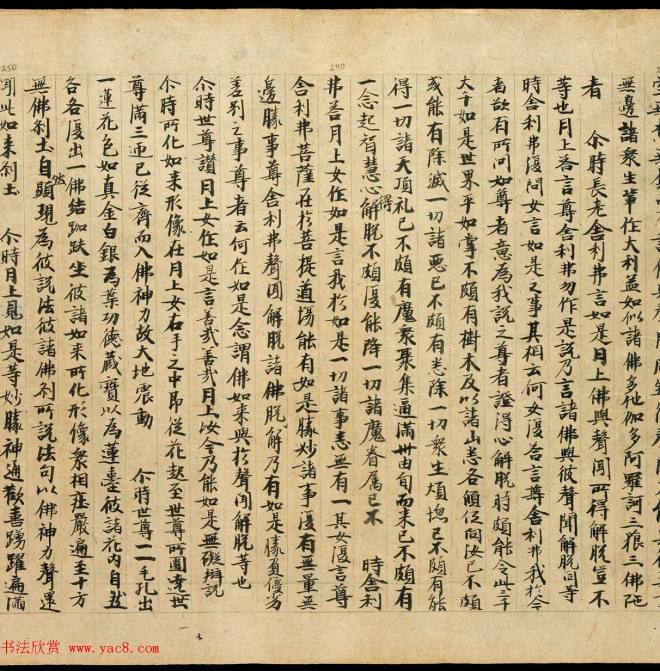 無邊諸衆生輩作大利益如似諸佛多他伽多阿羅訶三藐三佛陀
者 尒時長老舍利弗言如是月上佛與聲聞所得解脫豈不
等也月上荅言尊舍利弗勿作是說乃言諸佛與彼聲聞解脫同等
時舍利弗復問女言如是之事其相云何女復荅言尊舍利弗我於今
者欲有所問如尊者意為我說之尊者證得心解脫時頗能令此三千
大千如是世界平如掌不頗有樹木及以諸山悉各傾低向汝已不頗
或能有除滅一切諸惡已不頗有悉除一切衆生煩惚已不頗有能
得一切諸天頂礼已不頗有魔衆聚集逼滿卅由旬而来已不頗有
一念起智慧心得解脫不頗復能降一切諸魔眷屬已不 時舍利
弗荅月上女作如是言我於如是一切諸事悉無有一其女復言尊
舍利弗菩薩在於菩提道場能有如是勝妙諸事復有無量無
邊勝事尊舍利弗聲聞解脫諸佛脫解乃有如是勝負優劣
差別之事尊者云何作如是念謂佛如来與於聲聞解脫等也
尒時世尊讚月上女作如是言善哉善哉月上汝今乃能如是無礙辯說
尒時所化如来形像在月上女右手之中即從花起至世尊所圍遶世
尊滿三迊已從齊而入佛神力故大地震動 尒時世尊一一毛孔出
一蓮花色如真金白銀為葉功德藏寶以為蓮臺彼諸花内自然
各各復出一佛結跏趺坐彼諸如来所化形像衆相莊嚴遍至十方
無佛刹土自然顯現為彼說法彼諸佛刹所說法句以佛神力聲還
聞此如来刹土 尒時月上見如是等妙勝神通歡喜踴躍遍滿
240
250
书法欣赏 www.yac8.com